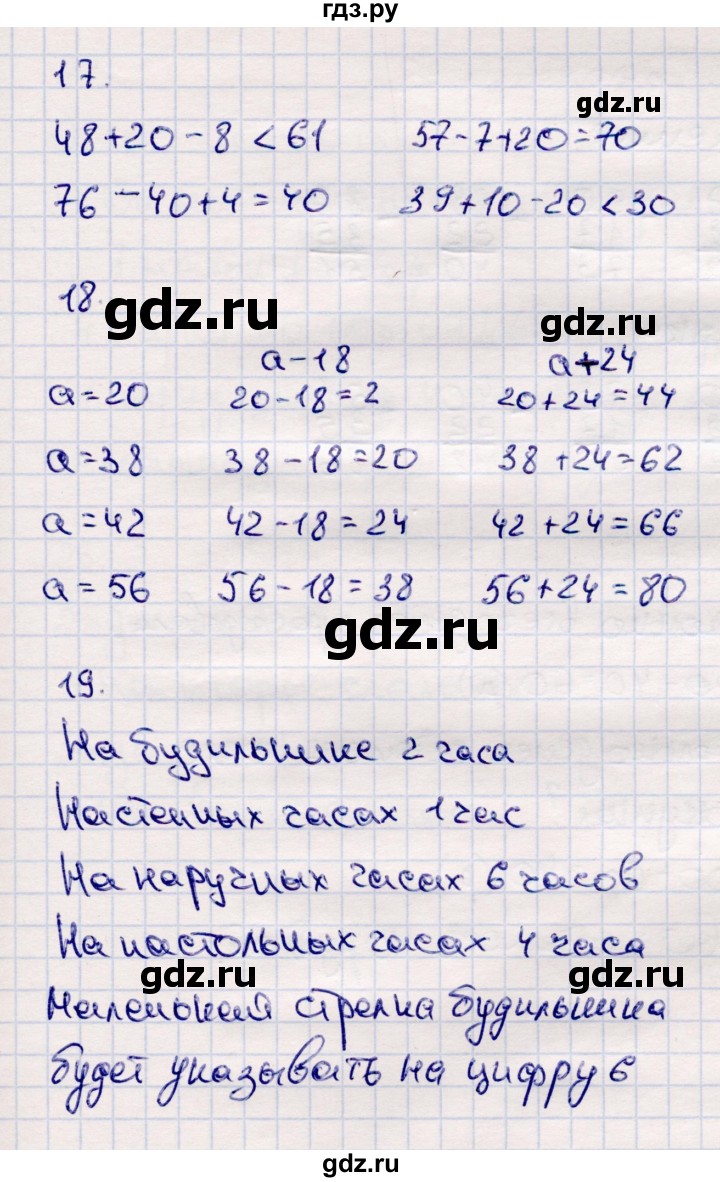 гдз.ру
17.
gdz.ru
48+20-8<61 57-7+20=70
76-40+4=40 39+10-20<30
18.
gdz.ru
gdz.ru
a-18 a+24
a=20 20-18=2 20+24=44
a=38 38-18=20 38+24=62
a=42 42-18=24 42+24=66
a=56 56-18=38 56+24=80
gdz.ru
19.
На будильнике 2 часа
Настенных часах 1 час
На наручных часах 6 часов
На настольных часах 4 часа
gdz.ru gdz.ru
Маленькая стрелка будильника
будет указывать на цифру 6
gdz.ru